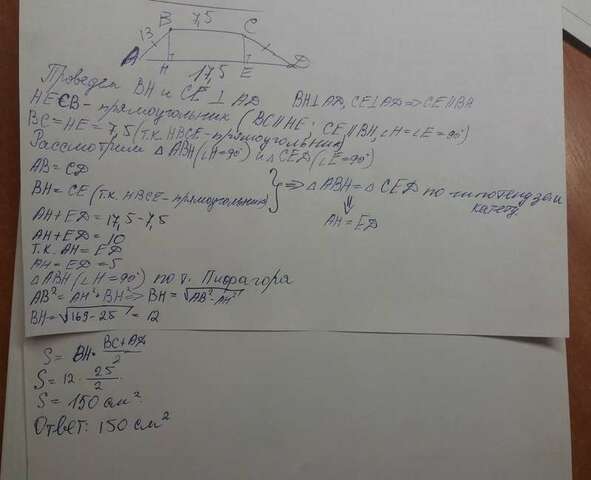 B 7,5 C
13
A H 17,5 E D
Проведём BH и CE ⊥ AD BH⊥AD, CE⊥AD => CE∥BH
HECB - прямоугольник (BC∥HE; CE∥BH, ∠H=∠E=90°)
BC=HE=7,5 (т.к. HBCE-прямоугольник)
Рассмотрим △ABH (∠H=90°) и △CED (∠E=90°)
AB=CD
BH=CE (т.к. HBCE-прямоугольник) } => △ABH=△CED по гипотенузе и катету
AH+ED=17,5-7,5 ⇓ AH=ED
AH+ED=10
т.к. AH=ED
AH=ED=5
△ABH (∠H=90°) по т. Пифагора
AB²=AH²+BH² => BH=√AB²-AH²
BH=√169-25=12
S=BH·(BC+AD)/2
S=12·25/2
S=150см²
Ответ: 150 см²